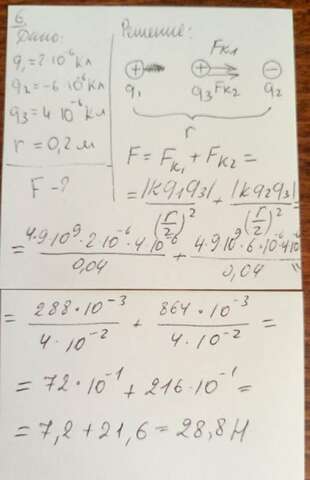 6.
Дано:
q₁=2·10⁻⁶ кл
q₂=-6·10⁻⁶ кл
q₃=4·10⁻⁶ кл
r = 0,2 м
F - ?
Решение:
Fк₁
+ + −
q₁ q₃ Fк₂ q₂
r
F = Fк₁ + Fк₂ =
= |kq₁q₃| / (r/2)² + |kq₂q₃| / (r/2)² =
= 4·9·10⁹·2·10⁻⁶·4·10⁻⁶ / 0,04 + 4·9·10⁹·6·10⁻⁶·4·10⁻⁶ / 0,04 =
= 288·10⁻³ / 4·10⁻² + 864·10⁻³ / 4·10⁻² =
= 72·10⁻¹ + 216·10⁻¹ =
= 7,2 + 21,6 = 28,8 Н